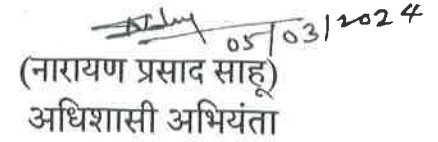 05/03/2024
(नारायण प्रसाद साहू)
अधिशासी अभियंता